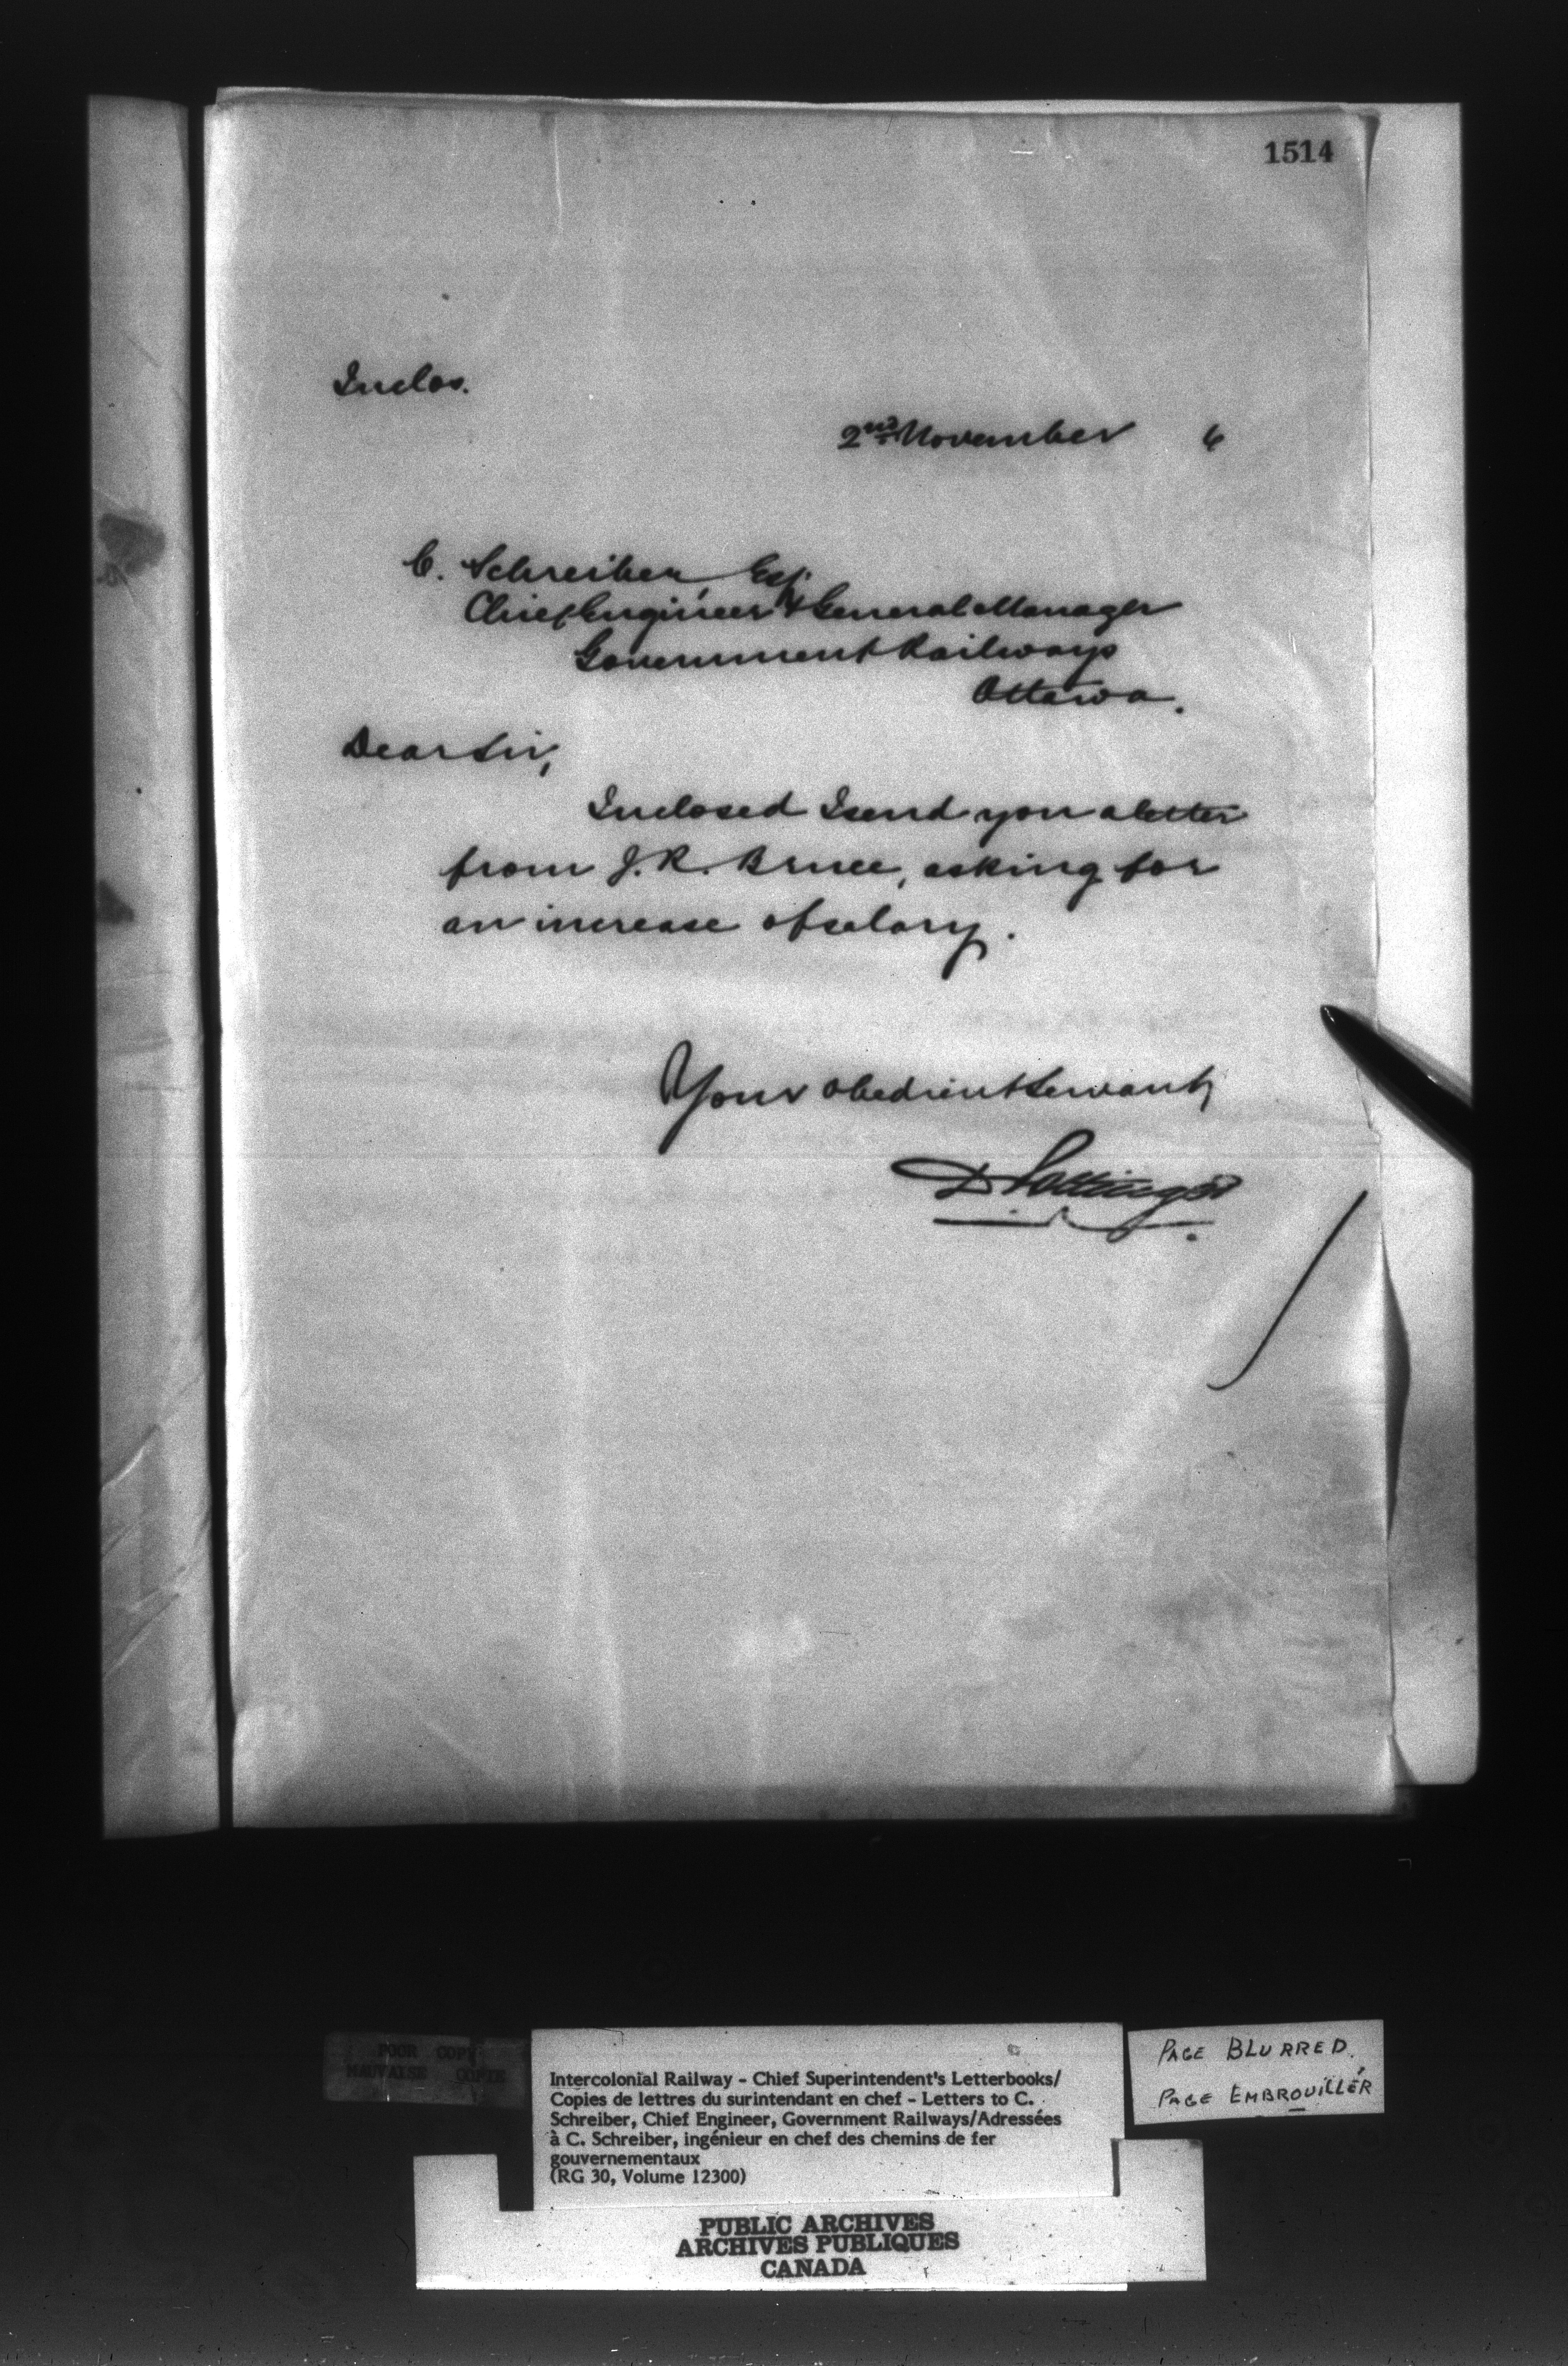 1514
Inclos.
2nd November 6
C. Schreiber, Esq.
Chief Engineer & General Manager
Government Railways
Ottawa.
Dear Sir,
Inclosed I send you a letter
from J. R. Bruce, asking for
an increase of salary.
Your obedient Servant,
D Pottinger
POOR COPY
MAUVAISE COPIE
Intercolonial Railway - Chief Superintendent's Letterbooks/
Copies de lettres du surintendant en chef - Letters to C.
Schreiber, Chief Engineer, Government Railways/Adressées
à C. Schreiber, ingénieur en chef des chemins de fer
gouvernementaux
(RG 30, Volume 12300)
PAGE BLURRED.
PAGE EMBROUILLÉR
PUBLIC ARCHIVES
ARCHIVES PUBLIQUES
CANADA